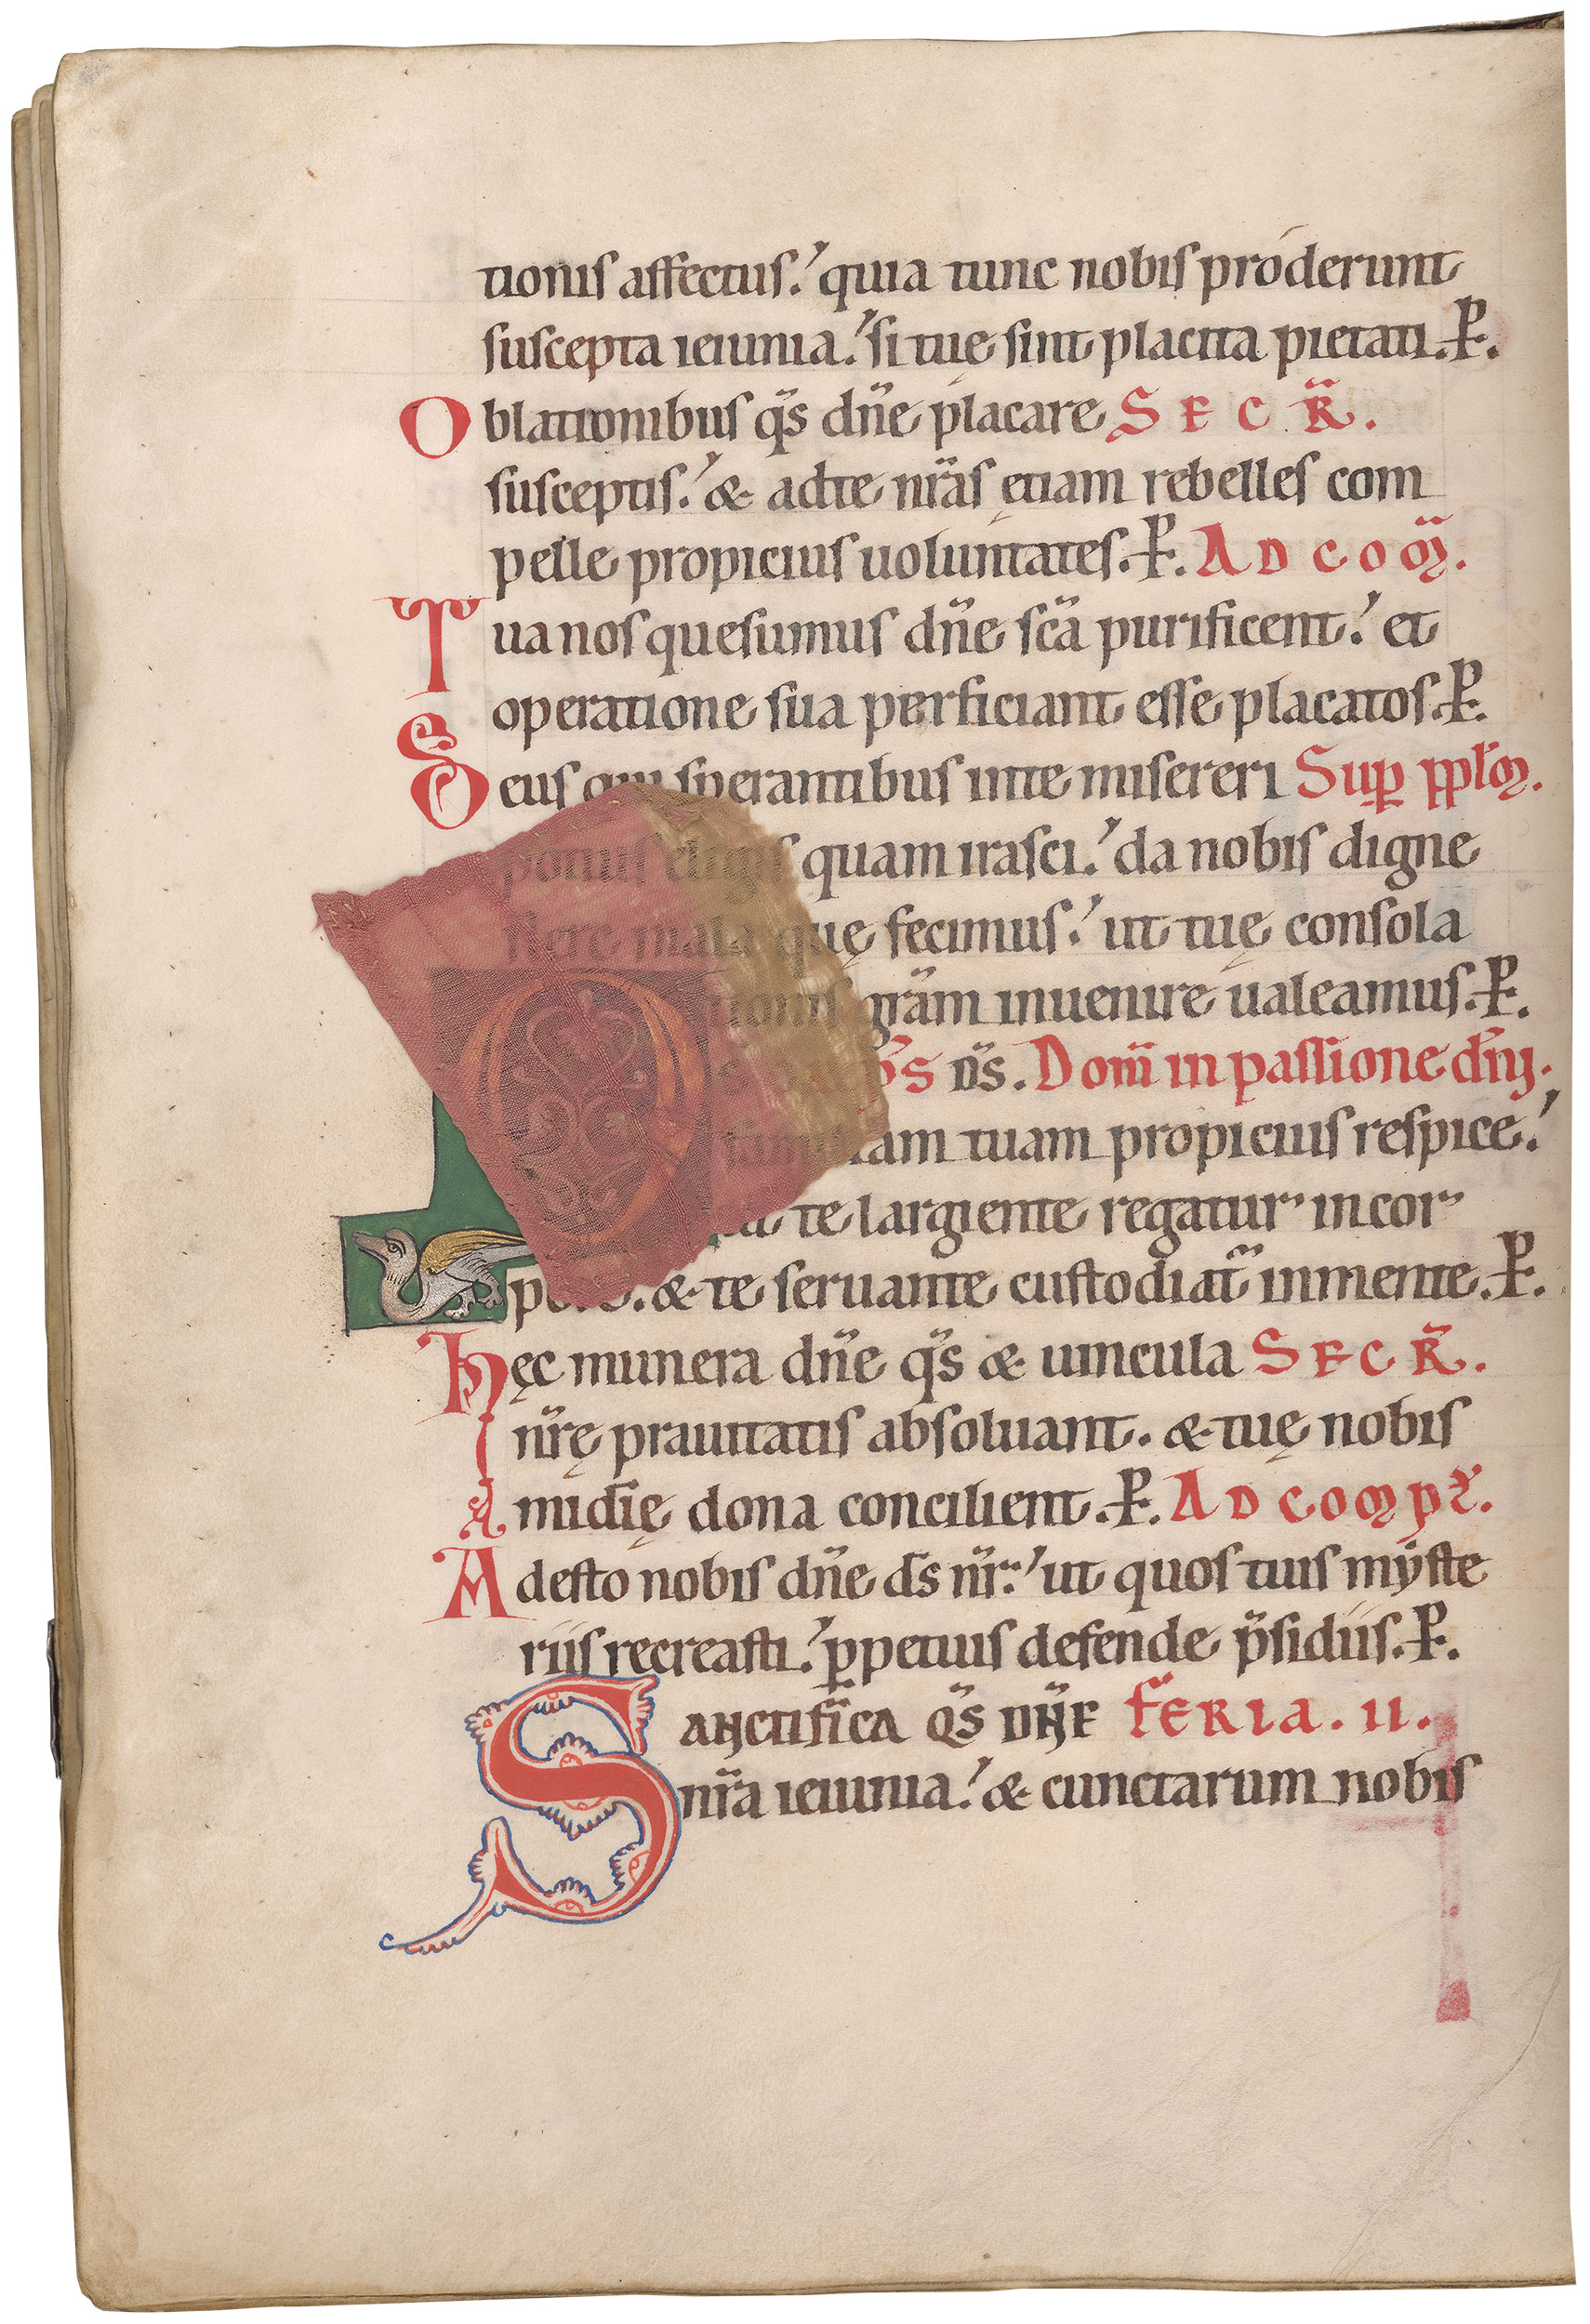 tionis affectus. quia tunc nobis proderunt
suscepta ieiunia. si tuę sint placita pietati. P.
Oblationibus q̄s dn̄e placare SECR̄.
susceptis. & adte nr̄as ętiam rebelles com
pelle propicius uoluntates. P. AD COM̄.
Tua nos quesumus dn̄e sc̄a purificent. et
operatione sua perficiant esse placatos. P.
Deus qui sperantibus inte misereri Sup̲ pp̲lm̄.
potius eligis quam irasci. da nobis digne
flere mala quę fecimus. ut tuę consola
tionis gr̄am inuenire ualeamus. P.
p̄s d̄s. Dom̄ in passione dn̄j.
familiam tuam propicius respice.
te largiente regatur incor
pore. & te seruante custodiat̄ inmente. P.
Hęc munera dn̄e q̄s & uincula SECR̄.
nr̄ę prauitatis absoluant. & tuę nobis
mīdię dona concilient. P. AD COMPL̄.
Adesto nobis dn̄e d̄s nr̄. ut quos tuis mẏste
riis recreasti. p̲petuis defende p̄sidiis. P.
Sanctifica q̄s dn̄e FERIA. II.
nr̄a ieiunia. & cunctarum nobis